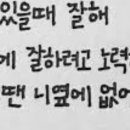 있을때 잘해
에 잘하려고 노력
땐 니옆에 없어